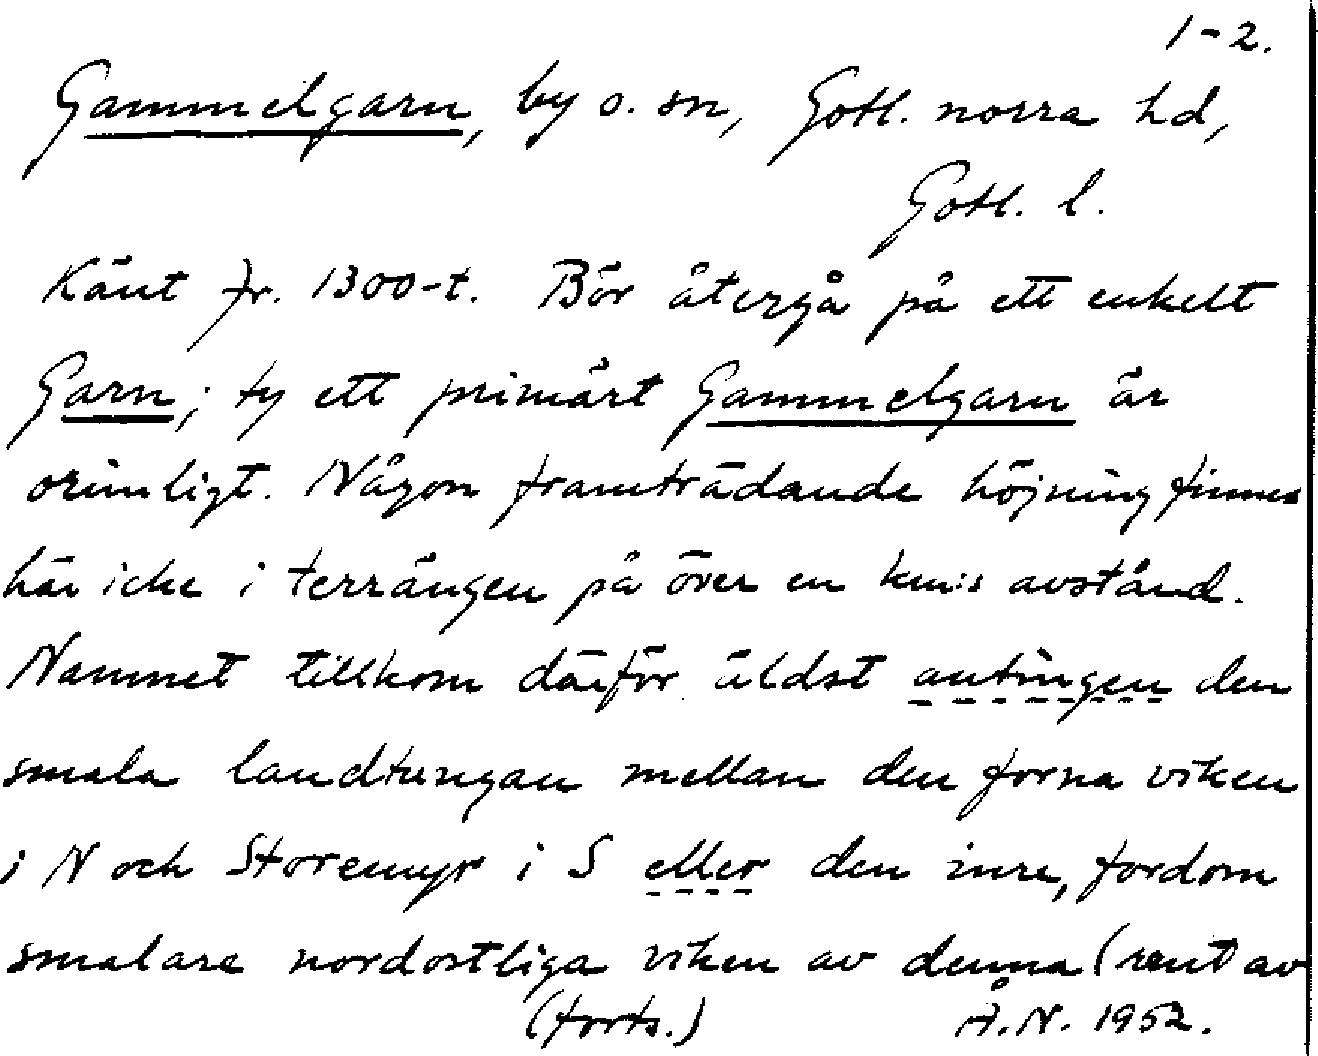 1-2.
Gammelgarn, by o. sn, Gotl. norra hd,
Gotl. l.
Känt fr. 1300-t. Bör återgå på ett enkelt
Garn; ty ett primärt Gammelgarn är
orimligt. Någon framträdande höjning finnes
här icke i terrängen på över en km:s avstånd.
Namnet tillkom därför äldst antingen den
smala landtungan mellan den forna viken
i N och Storemyr i S eller den inre, fordom
smalare nordostliga viken av denna (rent av
(forts.) Å.N. 1952.